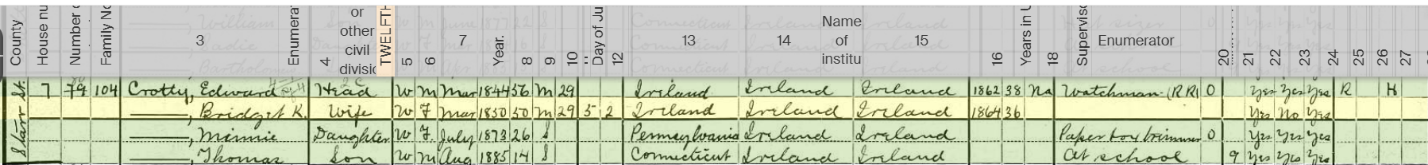 County House nu Number o Family No 3 Enumera or other civil divisio 4 TWELFTH 5 6 7 Year. 8 9 10 11 Day of Ju 12 13 14 Name of institu 15 16 Years in U 18 Superviso Enumerator 20 21 22 23 24 25 26 27
Starr St. 7 79 104 Crotty, Edward Head W M Mar 1844 56 M 29 Ireland Ireland Ireland 1862 38 Na Watchman (RR) 0 Yes Yes Yes R H
—, Bridget K. Wife W F Mar 1850 50 M 29 5 2 Ireland Ireland Ireland 1864 36 Yes No Yes
—, Minnie Daughter W F July 1873 26 S Pennsylvania Ireland Ireland Paper box trimmer 0 Yes Yes Yes
—, Thomas Son W M Aug 1885 14 S Connecticut Ireland Ireland At school 9 Yes Yes Yes